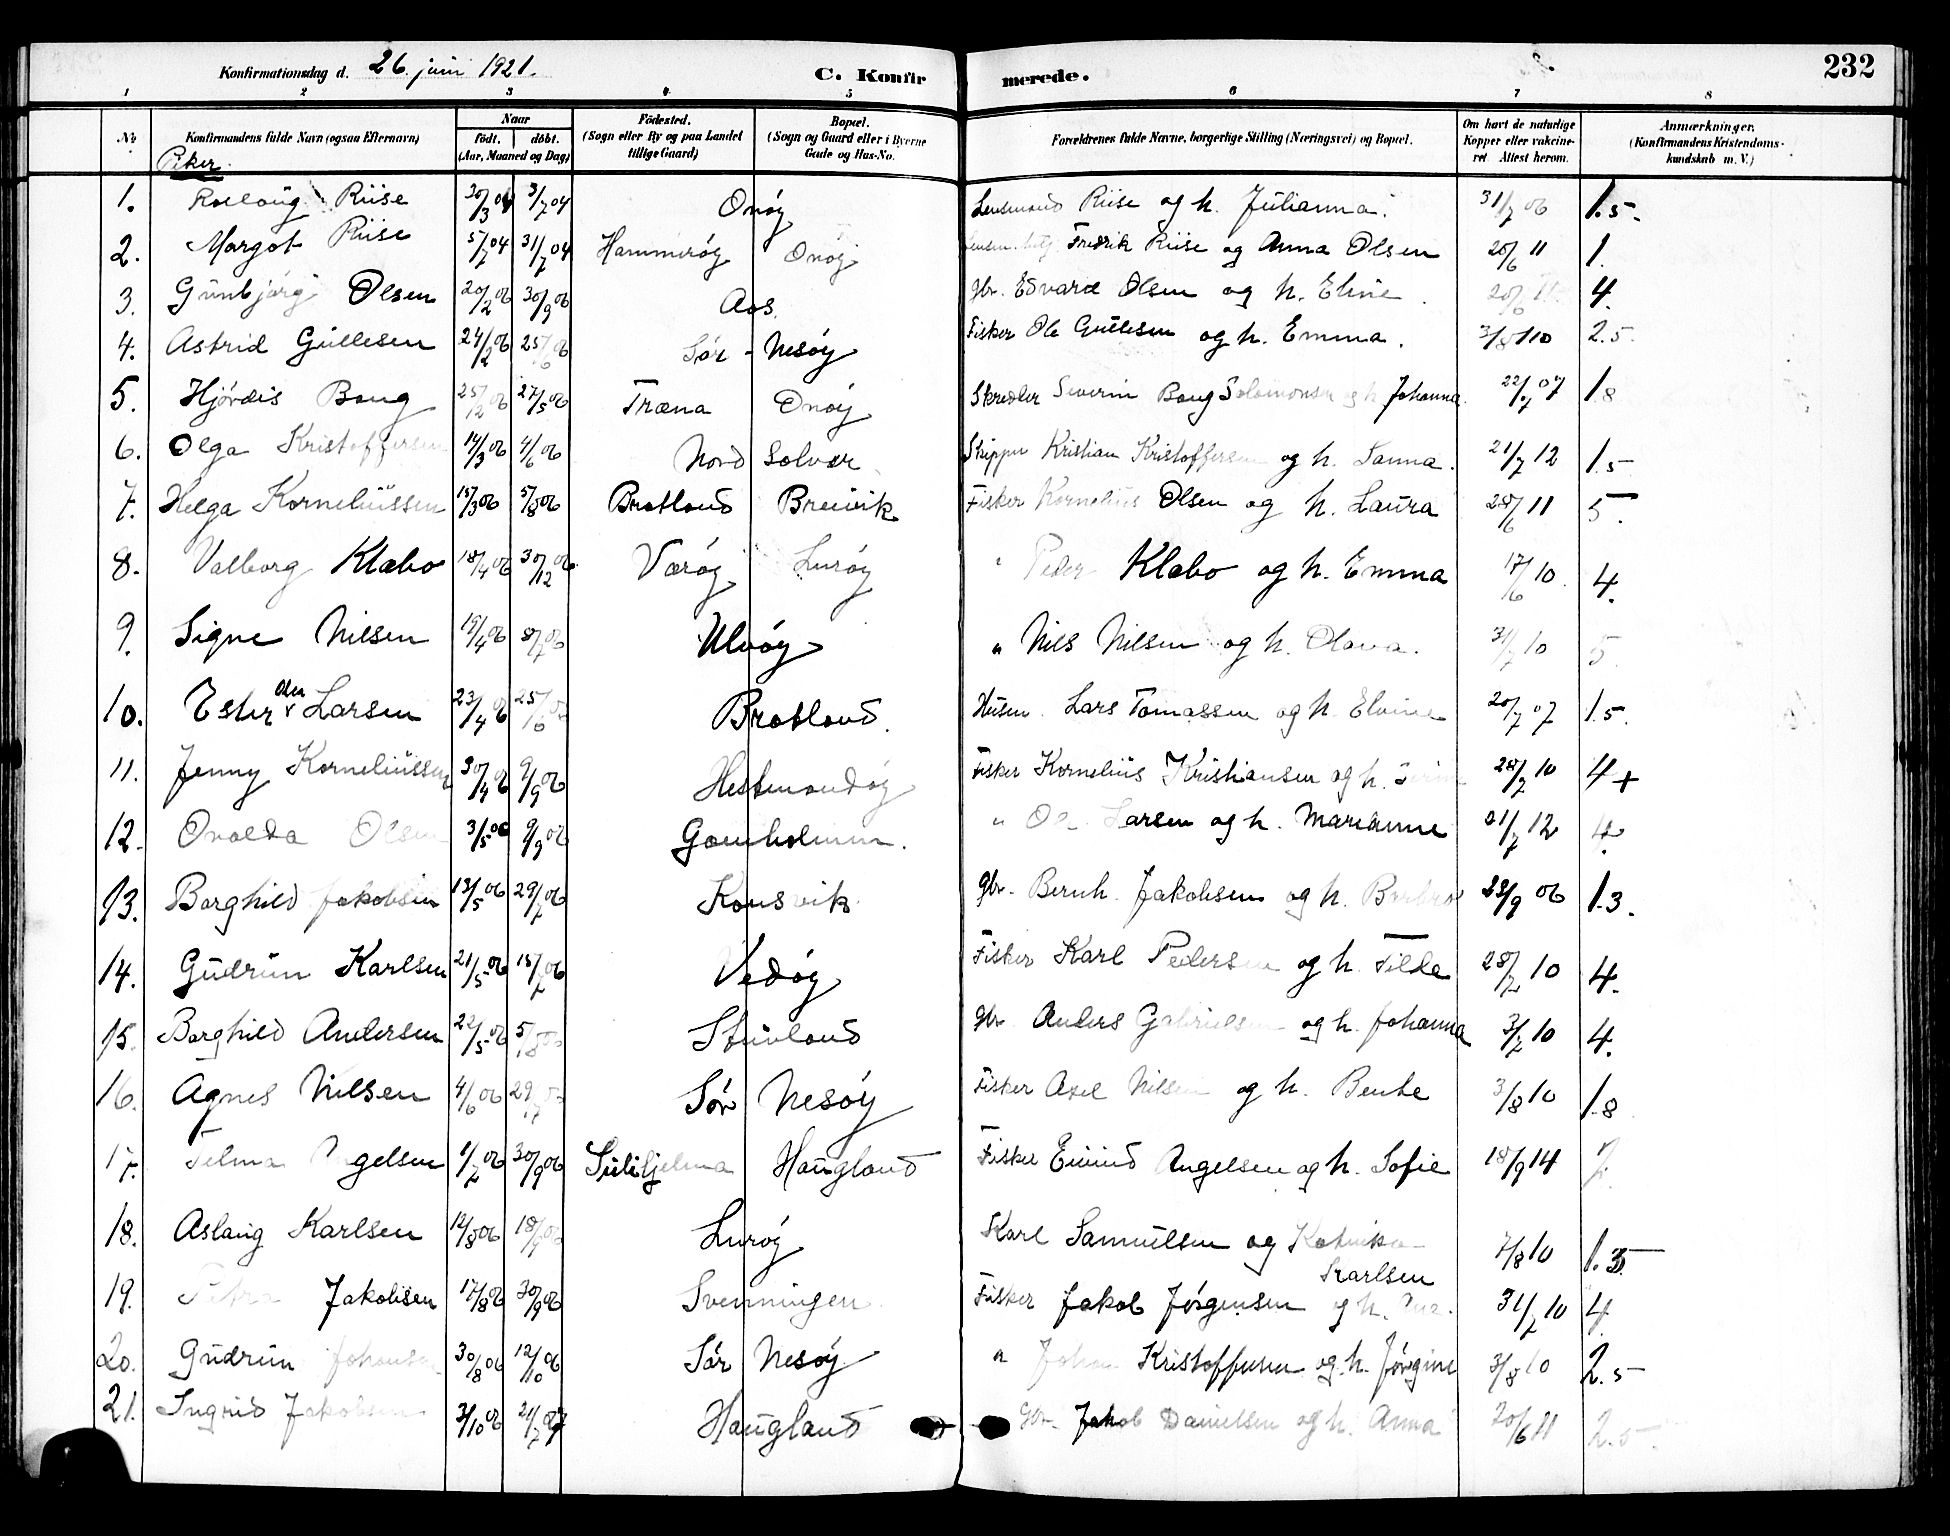 Konfirmationsdag d. 26. juni 1921. C. Konfirmerede. 232
1 2 3 4 5 6 7 8
No. Konfirmandens fulde Navn (ogsaa Efternavn) Naar født. døbt. (Aar, Maaned og Dag) Fødested. (Sogn eller By og paa Landet tillige Gaard) Bopæl. (Sogn og Gaard eller i Byerne Gade og Hus-No. Forældrenes fulde Navne, borgerlige Stilling (Næringsvei) og Bopæl. Om havt de naturlige Kopper eller vakcineret Attest herom. Anmærkninger. (Konfirmandens Kristendomskundskab m. V.)
Piker.
1. Riise 20/3 04 3/7 04 Onøy Lensmand Riise og h. Julianna. 31/7 06 1.5.
2. Margot Riise 5/7 04 31/7 04 Hammerøy Onøy Fredrik Riise og Anna Olsen 20/6 11 1.
3. Gunbjørg Olsen 20/2 06 30/9 06 Aos. gbr. Edvard Olsen og h. Eline. 20/6 11 4.
4. Astrid Gullesen 24/2 06 25/6 06 Sør-Nesøy Fisker Ole Gullesen og h. Emma. 3/8 10 2.5.
5. Hjørdis Bang 25/12 06 27/5 06 Træna Onøy Skredder Severin Bang Salomonsen og h Johanna. 22/7 07 1.8
6. Olga Kristoffersen 14/3 06 4/6 06 Nord Solvær Skipper Kristian Kristoffersen og h. Sanna. 21/7 12 1.5
7. Helga Korneliussen 15/3 06 5/8 06 Bratland Breivik Fisker Kornelius Olsen og h. Laura 28/6 11 5.
8. Valborg Klæbo 18/4 06 30/12 06. Værøy Lurøy " Peder Klæbo og h. Emma 17/6 10. 4.
9. Signe Nilsen 19/4 06 8/7 06 Ulvøy " Nils Nilsen og h. Olava. 31/7 10 5.
10. Ester Larsen 23/4 06 Bratland. Husm. Lars Tomassen og h. Elvine 20/7 07 1.5.
11. Jenny Korneliussen 30/4 06 9/9 06 Hestmandøy Fisker Kornelius Kristiansen og h. 28/7 10 4+
12. Ovalda Olsen 3/5 06 9/9 06 Gamholmen. " Larsen og h. Marianne 21/7 12 4.
13. Borghild Jakobsen 13/5 06 29/7 06 Konsvik gbr. Bernh. Jakobsen og h. Barbro 23/9 06 1.3.
14. Gudrun Karlsen 21/5 06 15/7 06 Vedøy Fisker Karl Pedersen og h. Tilda 28/7 10 4.
15. Borghild Andersen 22/5 06 5/8 06 Stuvland gbr. Anders Gabrielsen og h. Johanna 3/7 10 4.
16. Agnes Nilsen 4/6 06 Sør Nesøy Fisker Axel Nilsen og h. Bente 3/8 10 1.8
17. Telma Angelsen 1/7 06 30/9 06 Sulitjelma Haugland Fisker Eivind Angelsen og h. Sofie 18/9 14 2.
18. Aslaug Karlsen 12/8 06 18/9 06 Lurøy Karl Samuelsen og Karlsen 7/8 10 1.3
19. Petra Jakobsen 17/8 06 30/9 06 Svenningen. Fisker Jakob Jørgensen og h. 31/7 10 4.
20. Gudrun Johansen 30/8 06 12/10 06 Sør Nesøy " Johan Kristoffersen og h. Jørgine 3/8 10 2.5
21. Ingrid Jakobsen 3/10 06 21/7 07 Haugland Gbr. Jakob Danielsen og h. Anna 20/6 11 2.5.